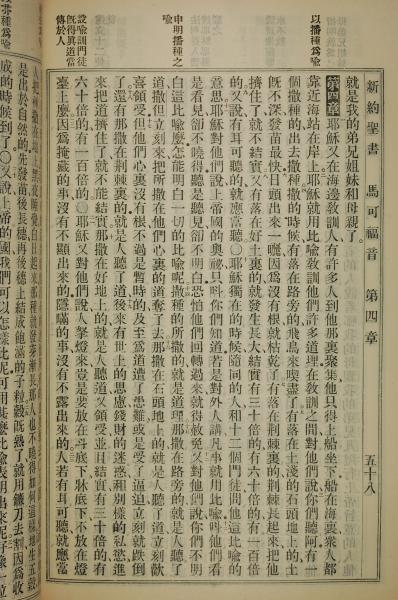 新約聖書 馬可福音 第四章 五十八
以播種爲喻
申明播種之喻
設喻訓門徒既得眞道當傳於人
就是我的弟兄姐妹和母親了。
第四章 耶穌又在海邊敎訓人有許多人到他那裏聚集他只得上船坐下船在海裏衆人都
靠近海站在岸上耶穌就用比喻敎訓他們許多道理在敎訓之間對他們說你們聽阿有一
個撒種的出去撒種撒的時候有落在路旁的飛鳥來喫盡了有落在土淺的石頭地上的土
既不深發苗最快日頭出來一曬因爲沒有根就枯乾了有落在荆棘裏的荆棘長起來把他
擠住了就不結實又有落在好土裏的就發生長大結實有三十倍的有六十倍的有一百倍
的又說有耳可聽的就應當聽〇耶穌獨在的時候隨同的人和十二個門徒問他這比喻的
意思耶穌對他們說上帝國的奧祕只叫你們知道若是對外人講凡事就用比喻叫他們看
是看見卻不曉得聽是聽見卻不明白恐怕他們回轉過來就得赦免又對他們說你們不明
白這比喻麽怎能明白一切的比喻呢撒種的所撒的就是道理那撒在路旁的就是人聽了
道撒但立刻來把所撒在他們心裏的道奪了去那撒在石頭地上的就是人聽了道立刻歡
喜領受但他們心裏沒有根不過是暫時的及至爲道遭了患難或是受了逼迫立刻就跌倒
了還有那撒在荆棘裏的就是人聽了道後來有世上的思慮錢財的迷惑和別樣的私慾進
來把道擠住了就不能結實那撒在好地上的就是人聽道又領受並且結實有三十倍的有
六十倍的有一百倍的〇耶穌又對他們說人拏燈來豈是要放在斗底下牀底下不放在燈
臺上麽因爲掩藏的事沒有不顯出來的隱瞞的事沒有不露出來的人若有耳可聽就應當
是出於自然的先發苗後長穗再後穗上結成飽滿的子粒穀既熟了就用鐮刀去割因爲收
成的時候到了〇又說上帝的國我們可以怎樣比呢可用甚麽比喻表明出來